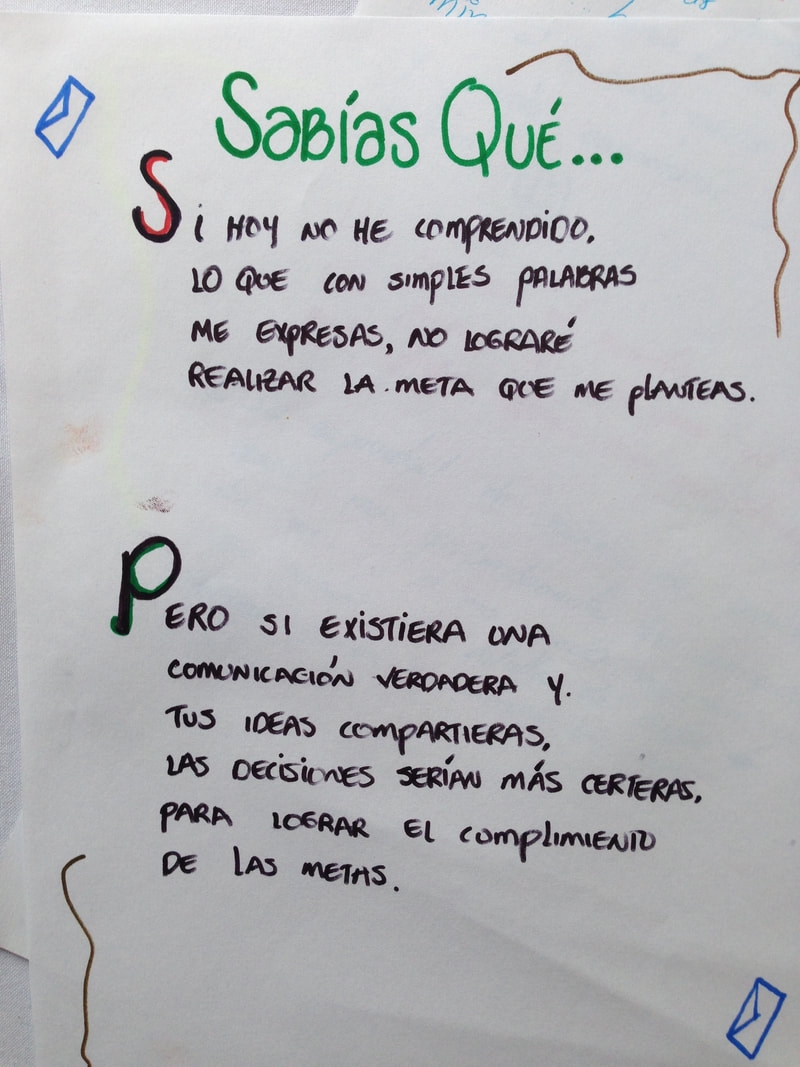 Sabías Qué...
Si HOY NO HE COMPRENDIDO.
LO QUE CON SIMPLES PALABRAS
ME EXPRESAS, NO LOGRARÉ
REALIZAR LA META QUE ME PLANTEAS.
PERO SI EXISTIERA UNA
COMUNICACIÓN VERDADERA Y.
TUS IDEAS COMPARTIERAS,
LAS DECISIONES SERÍAN MÁS CERTERAS,
PARA LOGRAR EL COMPLIMIENTO
DE LAS METAS.